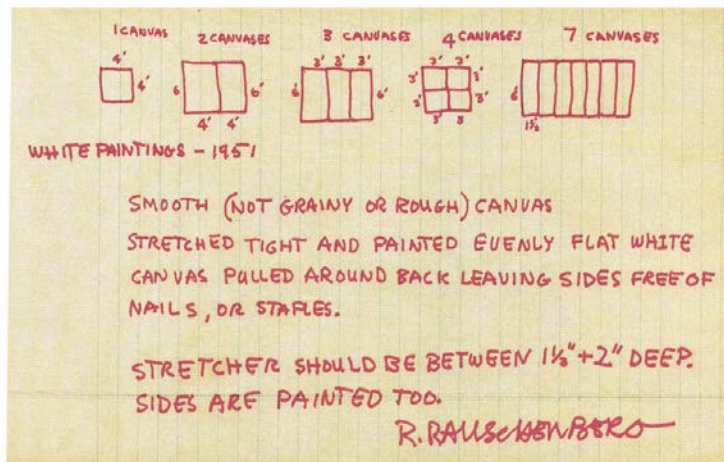 1 CANVAS 2 CANVASES 3 CANVASES 4 CANVASES 7 CANVASES
4' 3' 3' 3' 3' 3'
4' 6 6' 6' 6' 3' 3' 6'
3' 3'
4' 4' 3' 3 1½
WHITE PAINTINGS - 1951
SMOOTH (NOT GRAINY OR ROUGH) CANVAS
STRETCHED TIGHT AND PAINTED EVENLY FLAT WHITE
CANVAS PULLED AROUND BACK LEAVING SIDES FREE OF
NAILS, OR STAPLES.
STRETCHER SHOULD BE BETWEEN 1½"+2" DEEP.
SIDES ARE PAINTED TOO.
R. RAUSCHENBERG